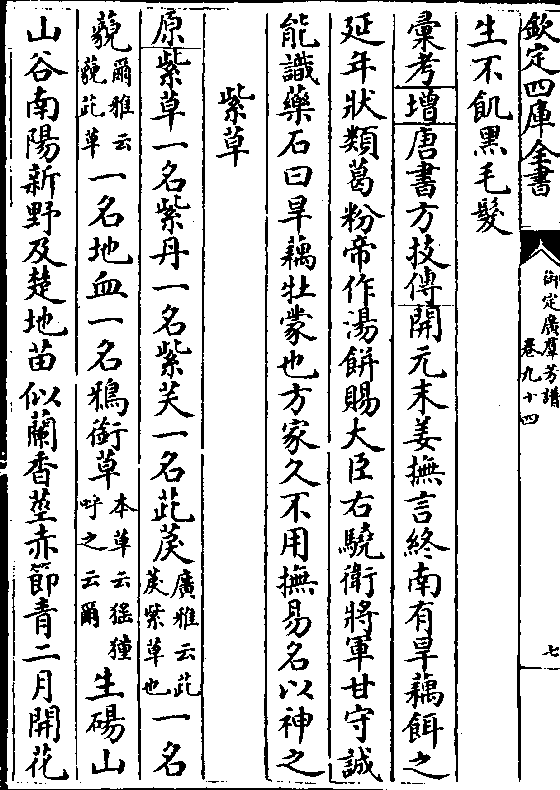 欽定四庫全書
御定廣羣芳譜
卷九十四
七
生不飢黑毛髮
彙考增唐書方技傳開元末姜撫言終南有旱藕餌之
延年狀類葛粉帝作湯餅賜大臣右驍衛將軍甘守誠
能識藥石曰旱藕牡蒙也方家久不用撫易名以神之
紫草
原紫草一名紫丹一名紫芙一名茈䓞廣雅云茈䓞紫草也一名
藐爾雅云藐茈草一名地血一名鴉銜草本草云猺獞呼之云爾生碭山
山谷南陽新野及楚地苗似蘭香莖赤節青二月開花